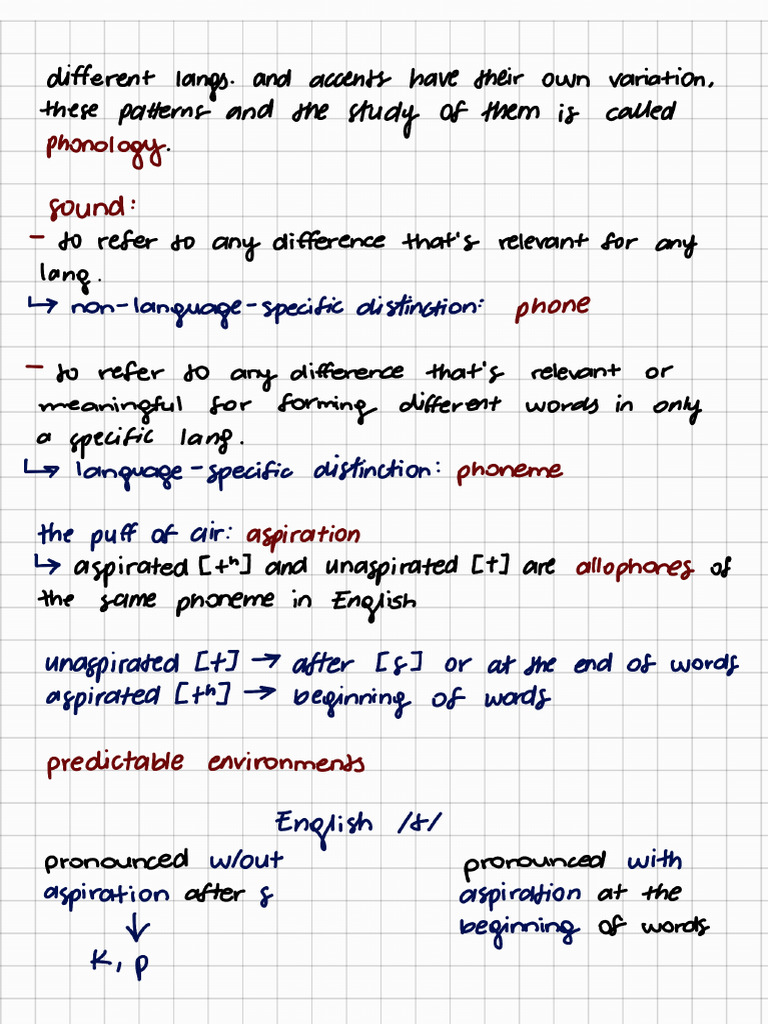 different langs. and accents have their own variation.
these patterns and the study of them is called
phonology.
sound:
- to refer to any difference that's relevant for any
lang.
↳ non-language-specific distinction: phone
- to refer to any difference that's relevant or
meaningful for forming different words in only
a specific lang.
↳ language-specific distinction: phoneme
the puff of air: aspiration
↳ aspirated [tʰ] and unaspirated [t] are allophones of
the same phoneme in English
unaspirated [t] → after [s] or at the end of words
aspirated [tʰ] → beginning of words
predictable environments
English /t/
pronounced w/out
aspiration after s
↓
k, p
pronounced with
aspiration at the
beginning of words